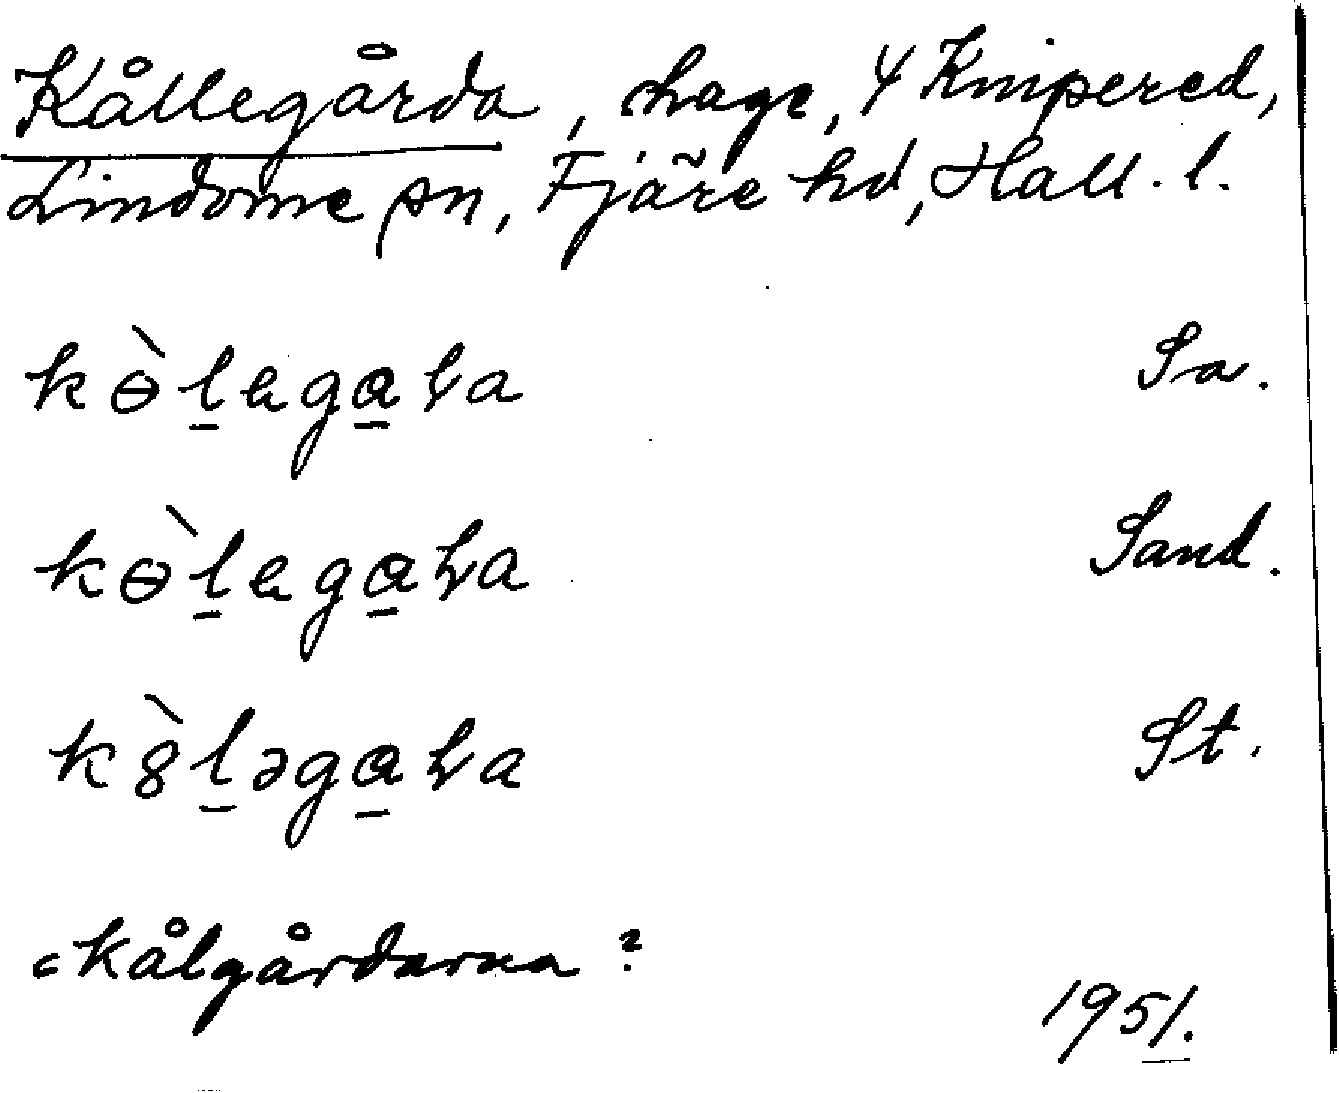 Kållegårda, hage, 4 Knipered,
Lindome sn, Fjäre hd, Hall. l.
kɵ̀l̲ega̲ꞎa Sa.
kɵ̀l̲ega̲ꞎa Sand.
k8̀l̲əga̲ꞎa St.
< kålgårdarna ?
1951.